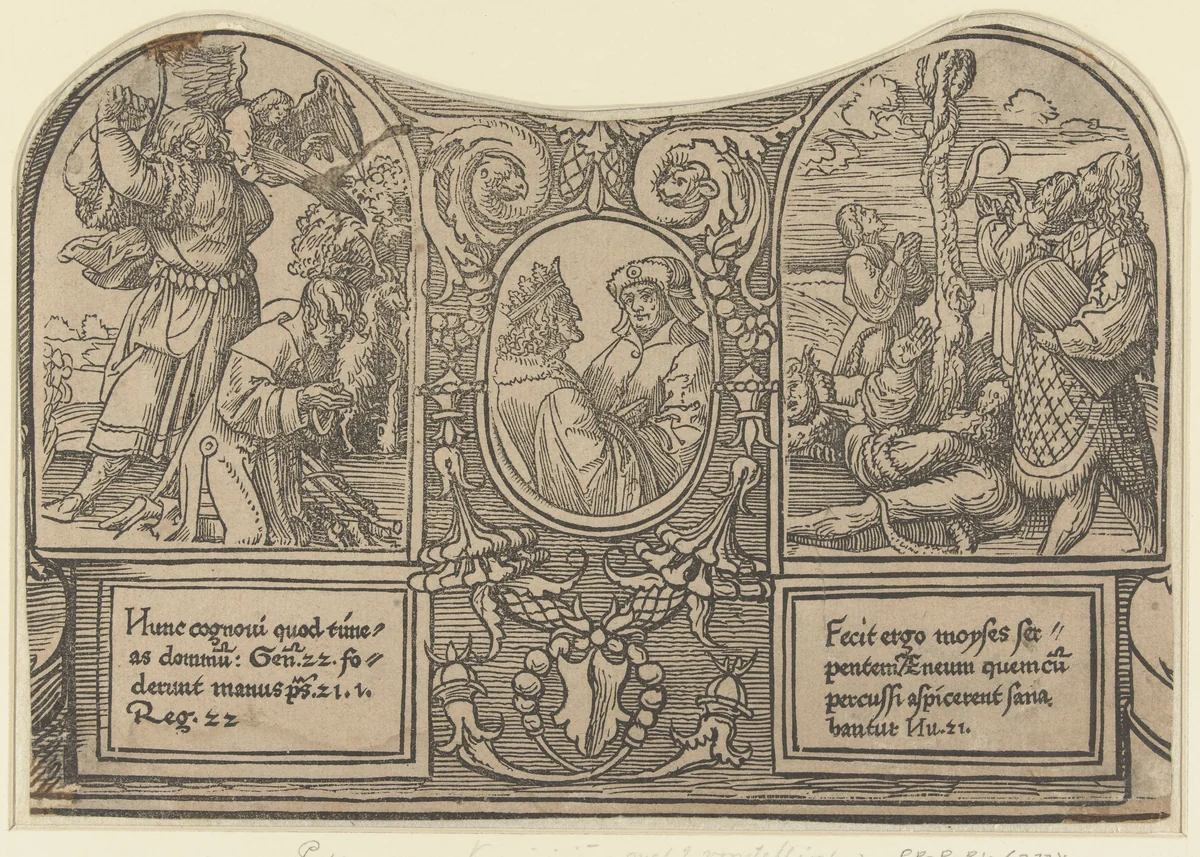 Nunc cognoui quod time〃
as dominū: Geñ. 22. fo〃
derunt manus p̄s. 21. 1.
Reg. 22
Fecit ergo moyses ser〃
pentem Æneum quem cū̄
percussi aspicerent sana
bantur Nu. 21.